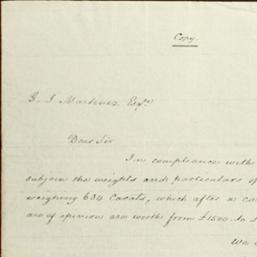 Copy.
G. J. Martinez Esqre.
Dear Sir
In compliance with
subjoin the weights and particulars of
weighing 634 Carats, which after a ca
are of opinion are worth from £1500. to £
We a